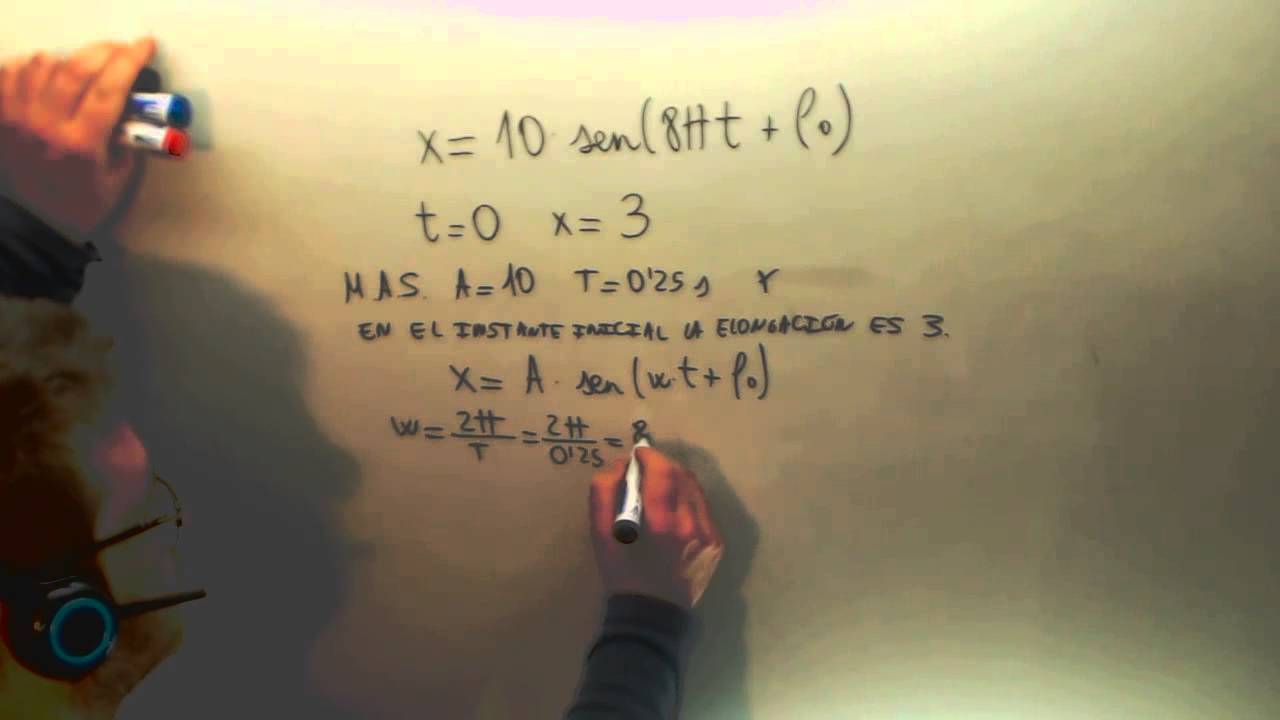 x = 10 · sen(8πt + φ₀)
t = 0 x = 3
M.A.S. A = 10 T = 0'25 s Y
EN EL INSTANTE INICIAL LA ELONGACIÓN ES 3.
X = A · sen(w·t + φ₀)
w = 2π/T = 2π/0'25 = 8